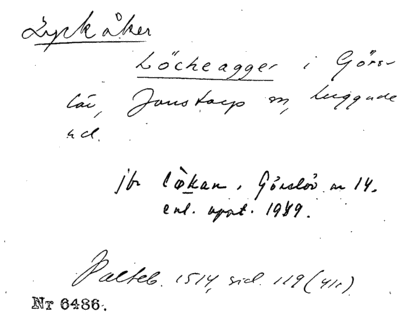 Lyckåker
Löcheagger i Görs-
löv, Jonstorp m, luggude
hd.
jfr Lökan, Görslöv nr 14.
enl. uppt. 1929.
Palteb. 1514, sid. 119 (411).
Nr 6486.